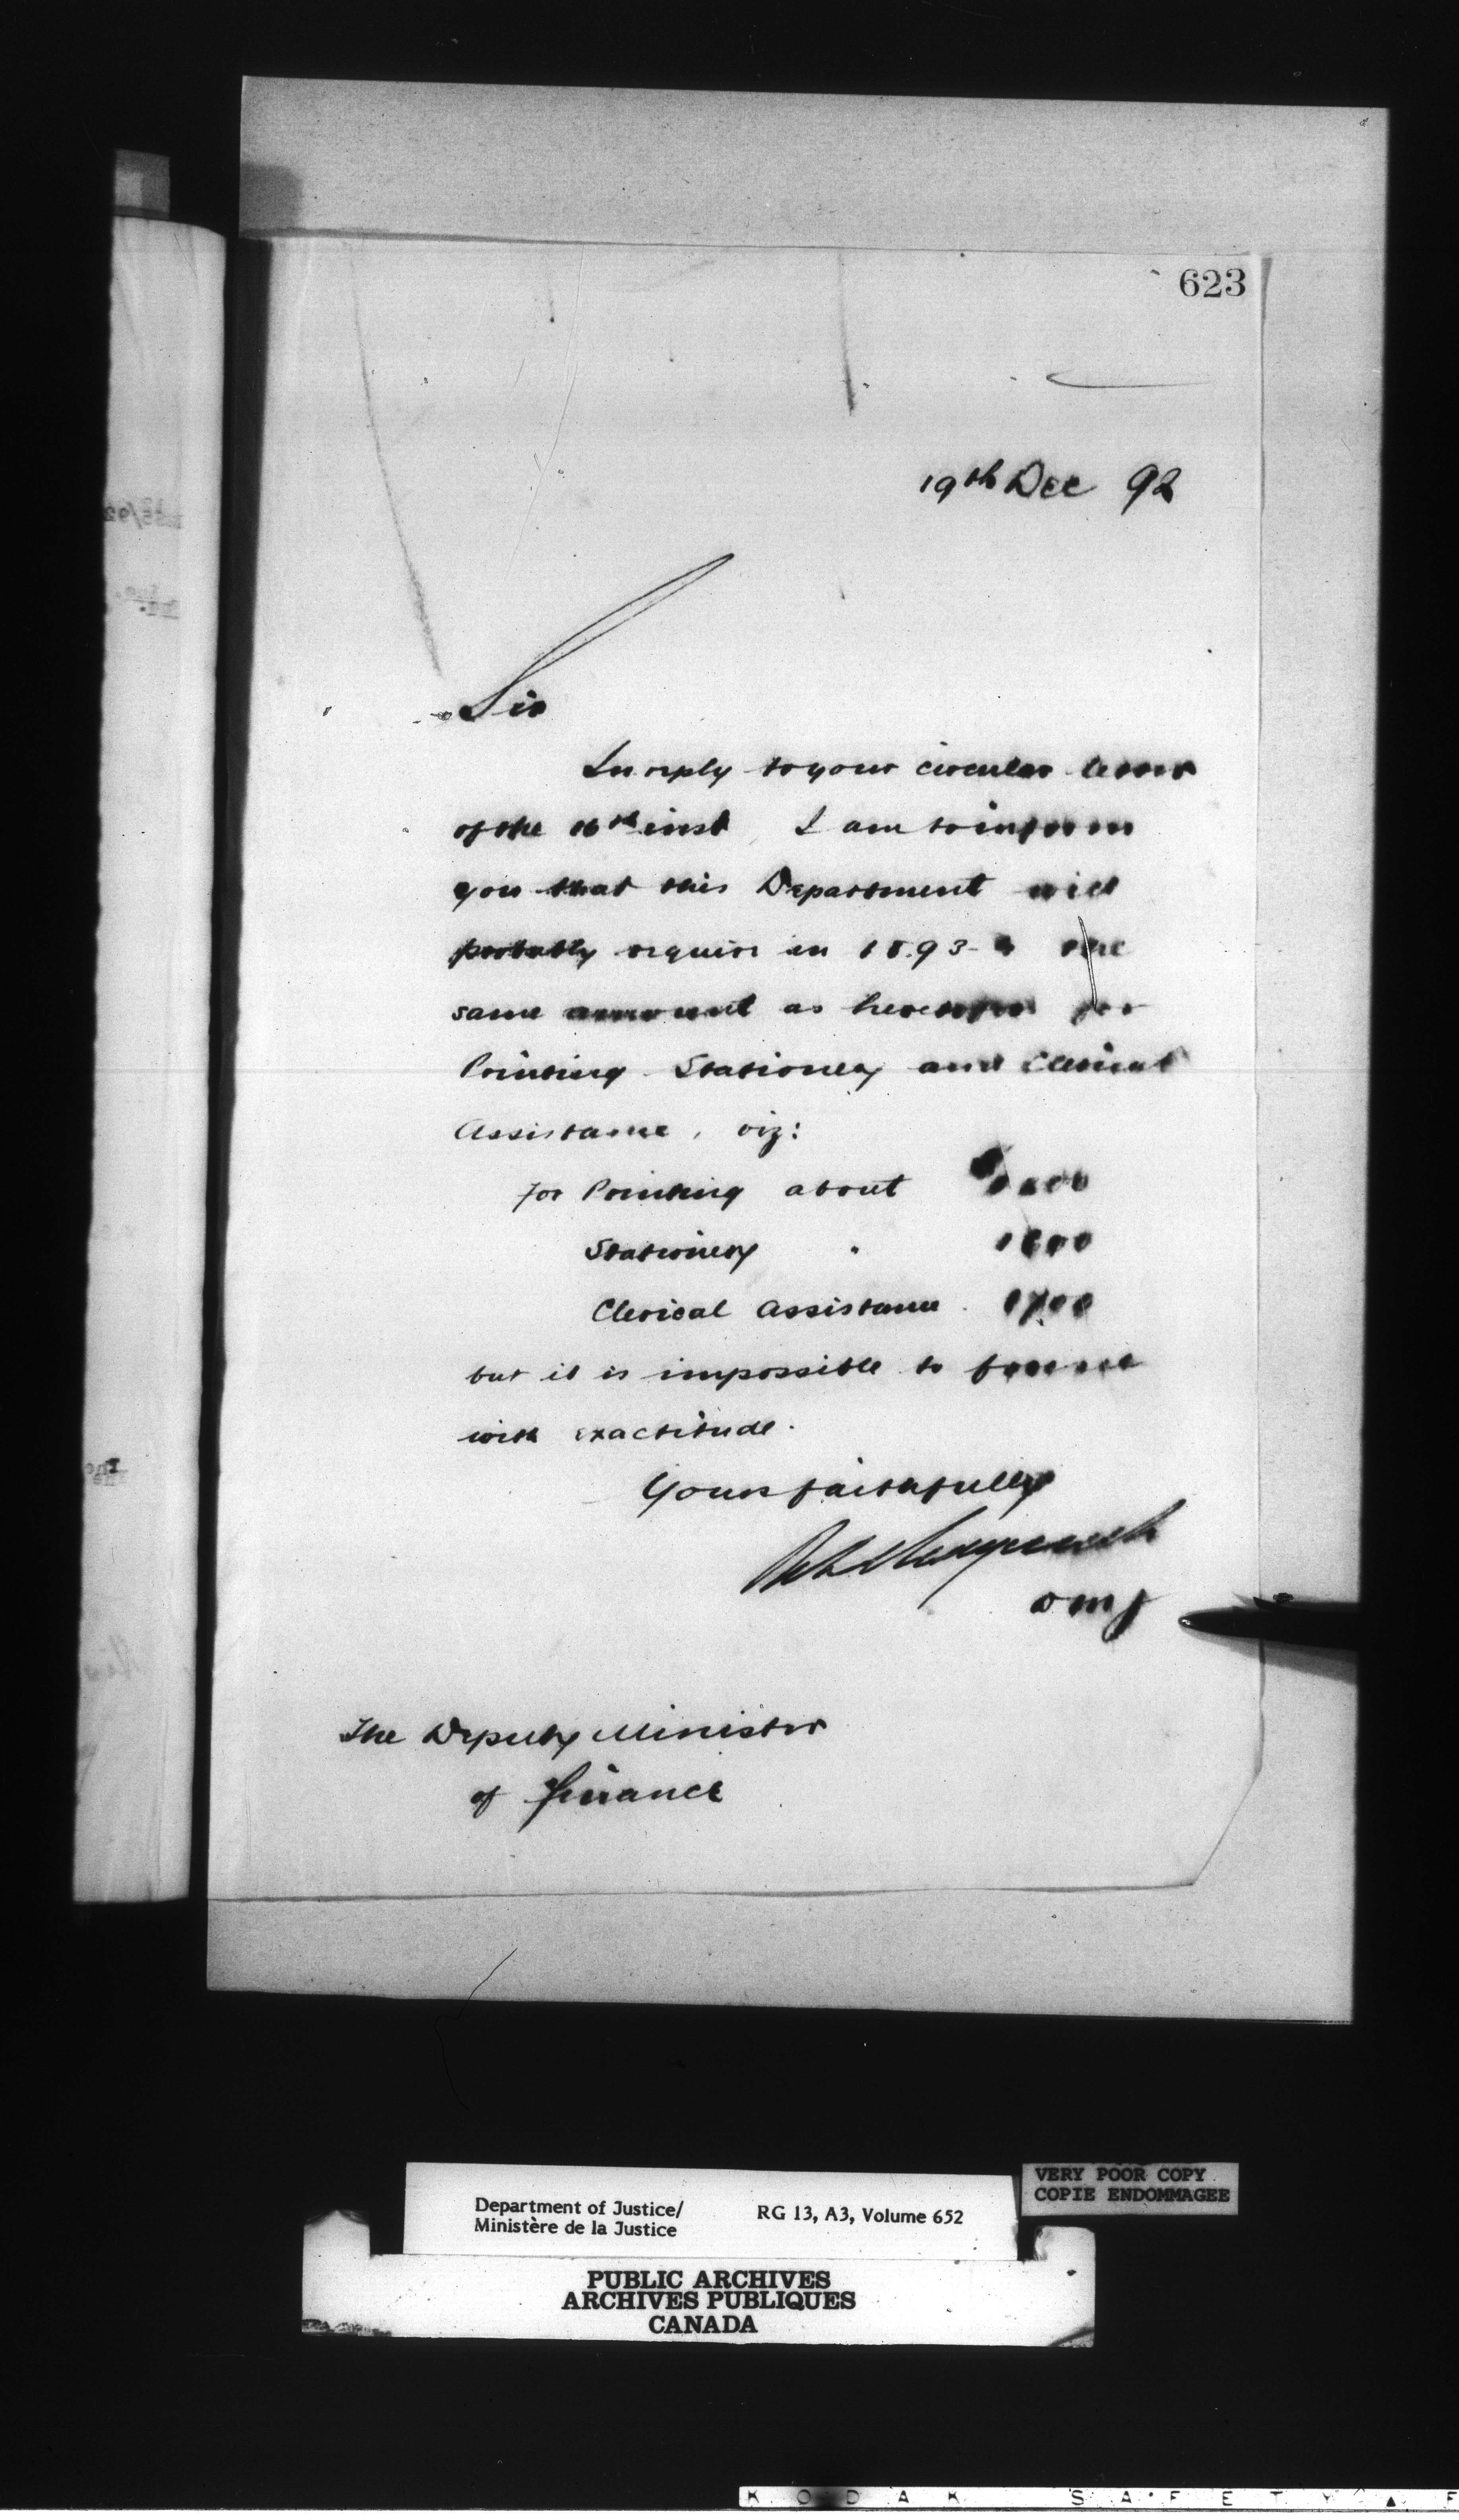 623
19th Dec 92
Sir
In reply to your circular letter
of the 16th inst I am to inform
you that this Department will
probably require in 1893-4 the
same amount as heretofore for
Printing Stationery and Clerical
Assistance, viz:
for Printing about
Stationery "
Clerical Assistance
but it is impossible to
with exactitude.
Yours faithfully
DMJ
The Deputy Minister
of Finance
Department of Justice/
Ministère de la Justice
RG 13, A3, Volume 652
VERY POOR COPY
COPIE ENDOMMAGEE
PUBLIC ARCHIVES
ARCHIVES PUBLIQUES
CANADA
KODAK SAFETY F